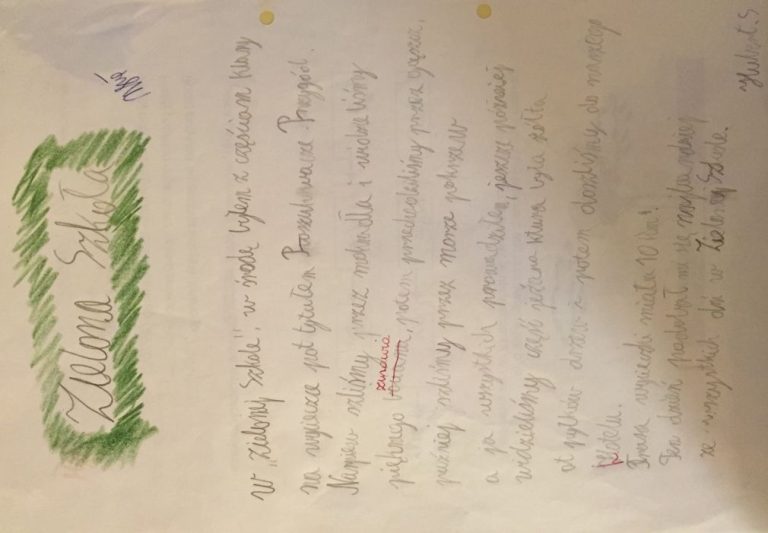 Zielona Szkoła
W „Zielonej Szkole", w środę byłem z częściom klasy
na wyciecze pod tytułem Poszukiwacze Przygód.
Najpierw szliśmy przez mokradła i widzieliśmy
pięknego żurawia, potem przechodziliśmy przez gąszcz,
puźniej szliśmy przez morze pokrzyw
a ja wszystkich prowadziłem, jeszcze później
widzieliśmy część jeziora która była żółta
od pyłków drzew a potem doszliśmy do naszego
hotelu.
Trasa wycieczki miała 10 km!
Ten dzień podobał mi się najbardziej
ze wszystkich dni w Zielonej Szkole.
Hubert.S